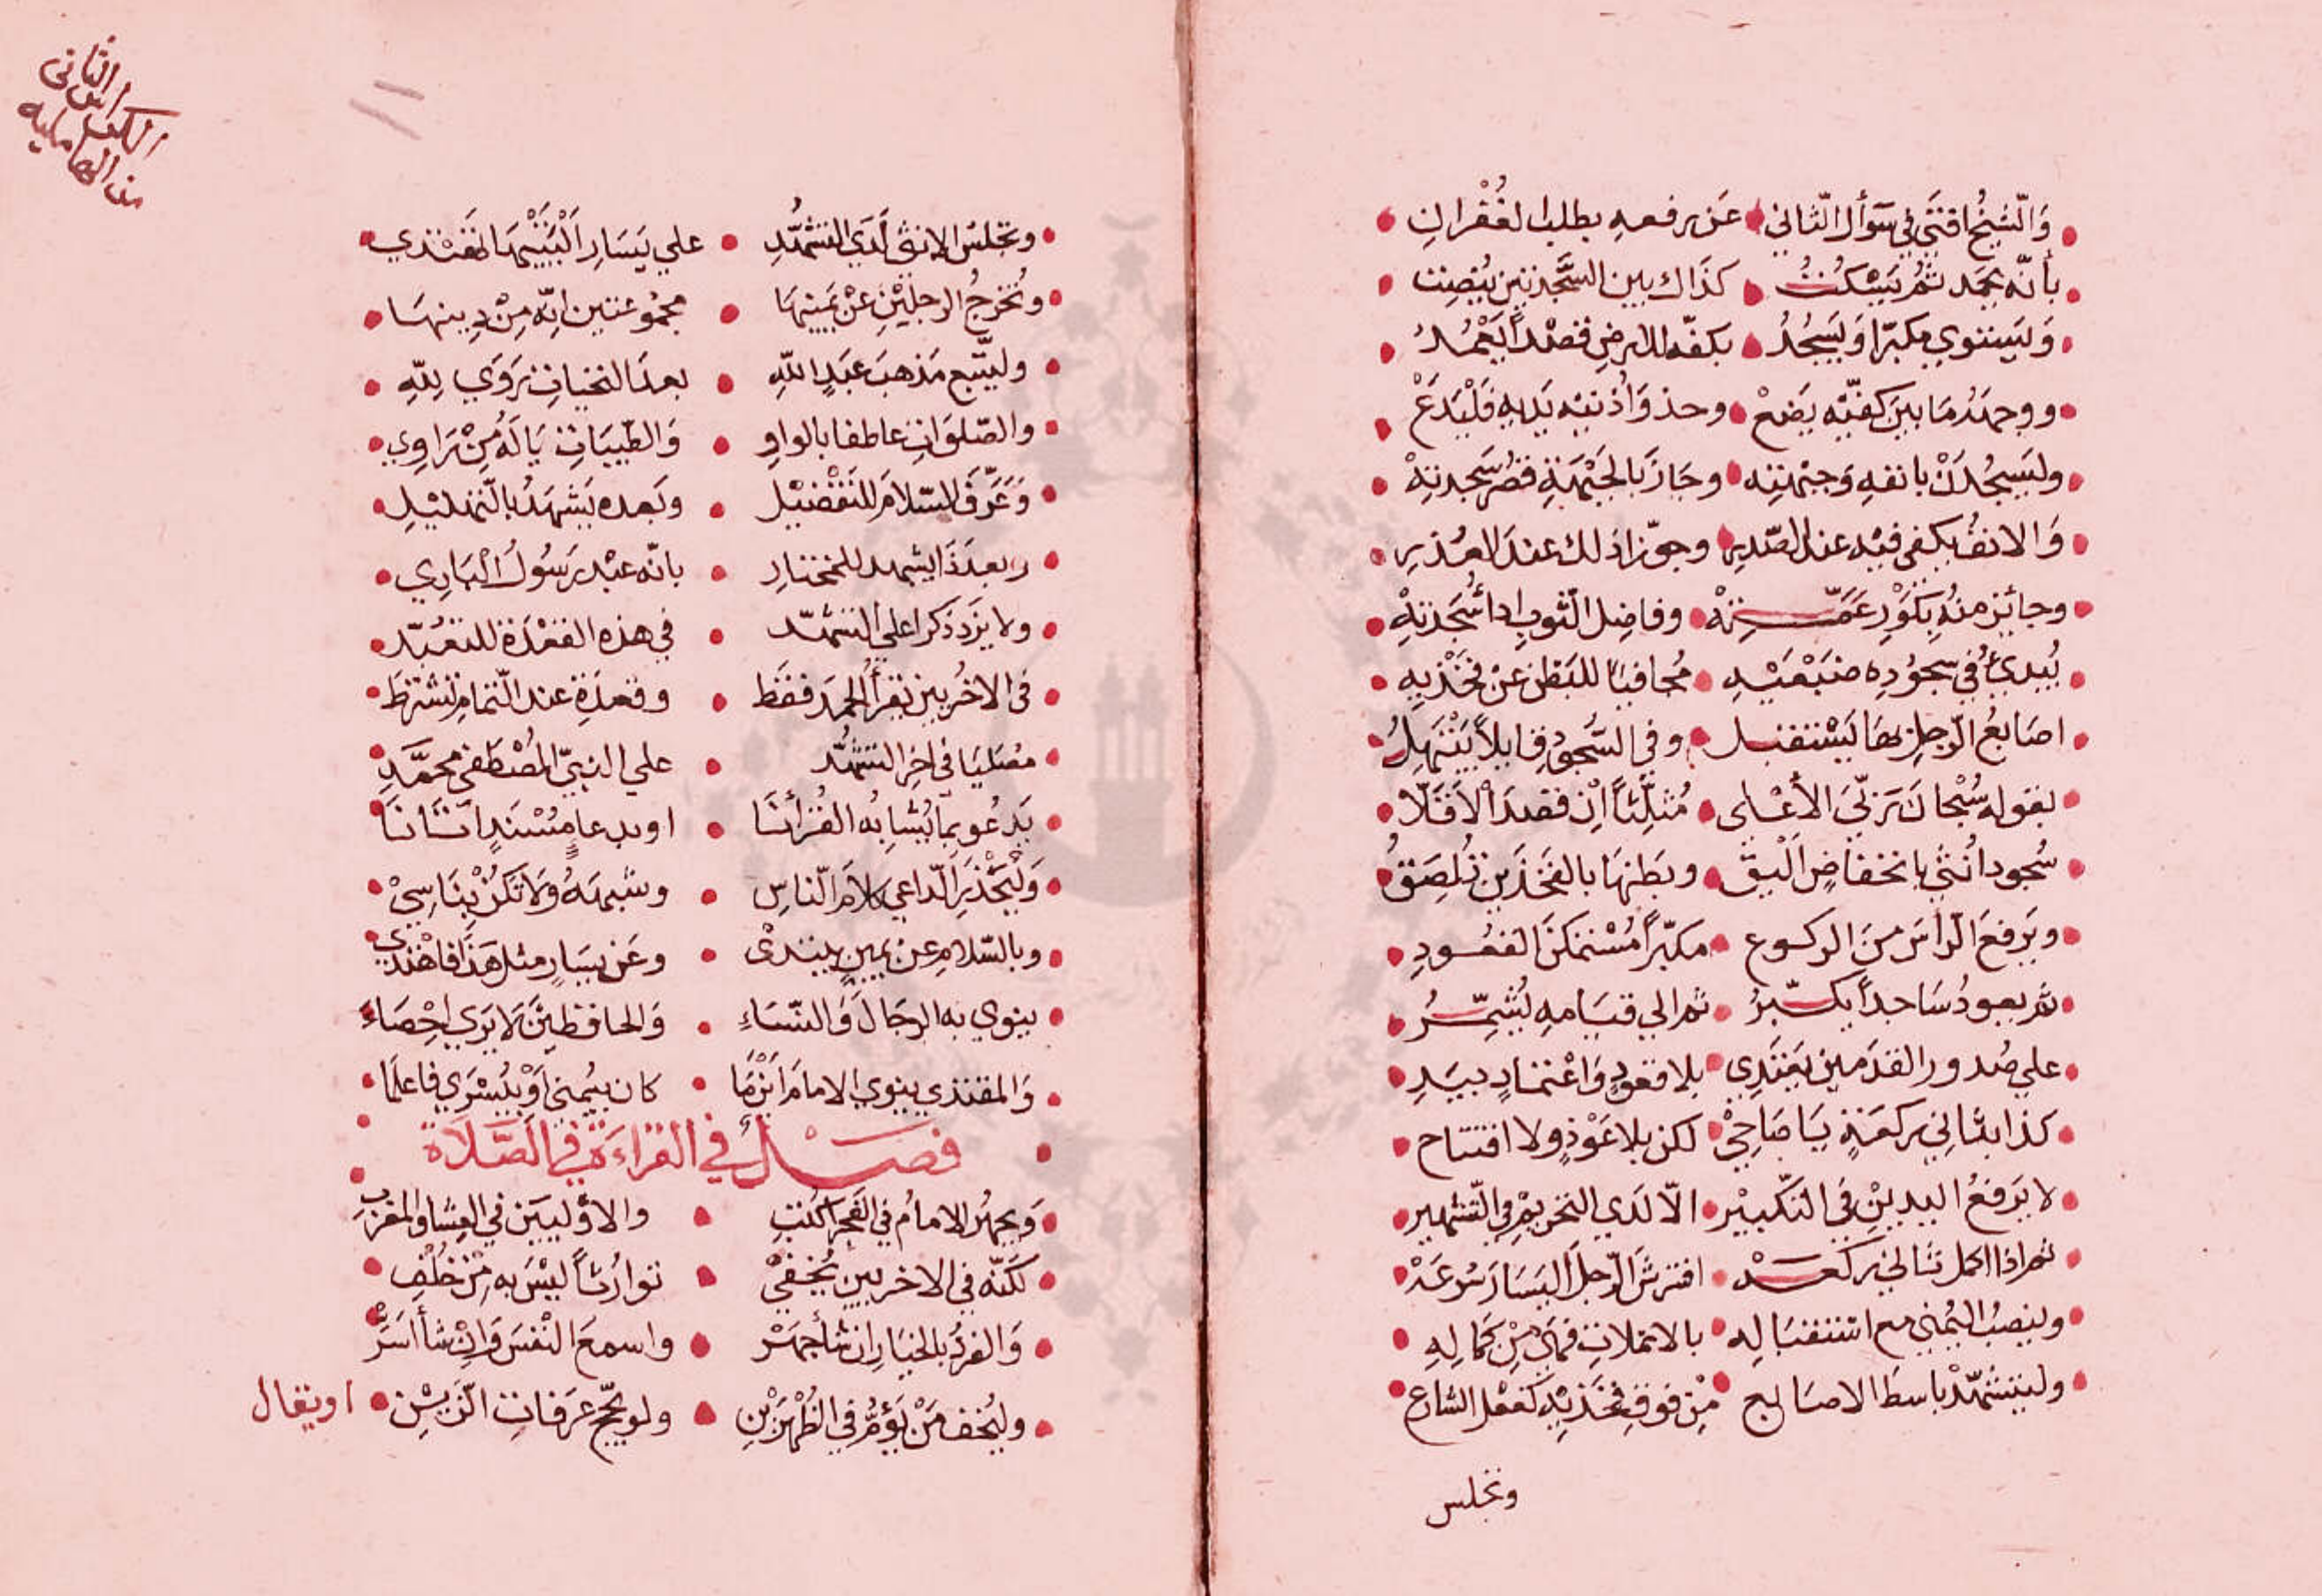 وَالشيخُ افتَى في سؤال الثاني عَن رفعه بطلب الغُفْرانِ
بأنّه يحمَد ثمُ يَسْكُتُ كذَاك بين السَّجدتين يُنصِت
وَليستوي مكبرّا وَليَسجُدُ بكفّه للارضِ قصْداً يَعْمُدُ
ووجهَهُ مَا بينَ كفيّه يَضعْ وحذوَ اُذنيْه يَديهِ فليَدَعْ
وليَسجُدَنْ بانفهِ وَجبْهتِه وحَازَ بالجَبْهَةِ قصْرُ سَجدتِهْ
وَالانفُ يكفى فيْه عند الصّدرِ وجوّزا ذلك عندَ العُذرِ
وجائِز منهُ بكَوْرِ عمَّتِهْ وفاضِل الثوبِ اداءُ سَجْدتِهْ
يُبدئُ في سُجوُدِه ضَبْعَيْهِ مُجافيًا للبَطنِ عنْ فخْذيهِ
اصَابعُ الرّجلِ بهَا يَسْتقبل وفي السُّجودِ قايلاً يَبْتَهِلُ
بقوله سُبْحانَ رَبّيَ الأعْلى مُثلِّثاً اِن قصدَ الاَقَلّا
سُجود اُنثى بانخفاضٍ اَليَق وبَطنهَا بالفَخذَين تُلصِقُ
ويَرفعَ الراسَ منَ الركوع مكبّراً مُسْتمكنَ القعُودِ
ثم يعودُ سَاجداً يكبّرُ ثم الى قيَامهِ يُشمِّرُ
علي صُدور القدَمين يَعْتَدِي بلا قعودٍ وَاعْتمادٍ بيَدِ
كذا بثانِي ركعَةٍ يَا صَاحِيْ لكن بلا عَوْذٍ ولا افتتاح
لا يَرفعُ اليدينِ في التكْبيْر الّا لَدي التحريْمِ في التّشْهير
ثم اذا اكمل ثاني ركعتهْ افترشَ الرّجلَ اليَسَارَ سُرعَهْ
ولينصِبُ اليُمْنى مع استقبَاله بالانملاتِ فَهيَ مِنْ كمالِهِ
وليتشهّدْ باسط الاصابع مِن فوق فخذَيْهِ كفعْل الشارع
وتجلس
الثانى
الكراس
من الهاملية
وتجلسُ الانثى لَدَي التشهُّدِ علي يَسَار اَلْيَتَيْهَا تقتدي
وتُخرجُ الرجليْنِ عنْ يَمينهَا مجمُوعتين اِنّه مِنْ دِينهَا
وليتّبع مَذهبَ عَبدِ اللهِ بعدَ التحيات رَوَي للّهِ
والصّلوَاتِ عاطفا بالواوِ وَالطّيبَاتِ يَا لَهُ مِنْ رَاوِي
وَعَرَّفَ السّلامَ للتفْضيْل وبَعده يَشهَدُ بالتّهليْلِ
وبعدَ ذَا يشهد للمختارِ بانّه عبْد رَسُولُ الْبَارِي
ولا يزَد ذكرا علي التشهّد في هذه القَعْدَة للتعَبُّد
فى الاخُريين يَقرأ الحمَد فقَط وقعدَةِ عند التّمام تشترَط
مصَليَا فى اخِر التشهُّد علي النبيّ المُصْطَفى محمَّدٍ
يَدعُو بما يُشابهُ القُرْأنَا او بدعا مُسْنَدٍ اتَانَا
وَليَحْذرِ الدّاعي كلامَ النّاسِ وشبهَهُ وَلا تكُنْ بنَاسِيْ
وبالسّلامِ عن يمينٍ يبتدئ وعَن يسَارٍ مثل هَذا فاهْتدي
ينوي به الرجَالَ وَالنّسَاءِ وَالحافظينَ لا يرَي اِحْصَاءَ
وَالمقتدي ينوي الامامَ اَيْنمَا كان بيُمنى اَوْ بيُسْرَي فاعلمَا
فصْلٌ في القراءَة في الصَّلَاة
وَيجهرُ الامامُ في الفَجرِ اكتُبِ والاوُليَينَ في العِشا والمغربِ
لكَنّه في الاخريين يُخفيْ توارُثاً ليْسَ به مِنْ خُلْفِ
وَالفردُ بالخيَار ان شأ جَهَرْ واسمعَ النْفسَ وَاِنْ شأ اسَرَّ
وليُخف مَنْ يَؤمُّ في الظُهْرَيْنِ ولو بحجّ عَرَفاتِ الزّيْنِ
او يقال